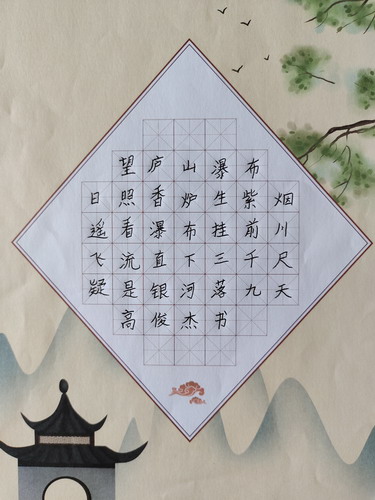 望庐山瀑布
日照香炉生紫烟
遥看瀑布挂前川
飞流直下三千尺
疑是银河落九天
高俊杰书